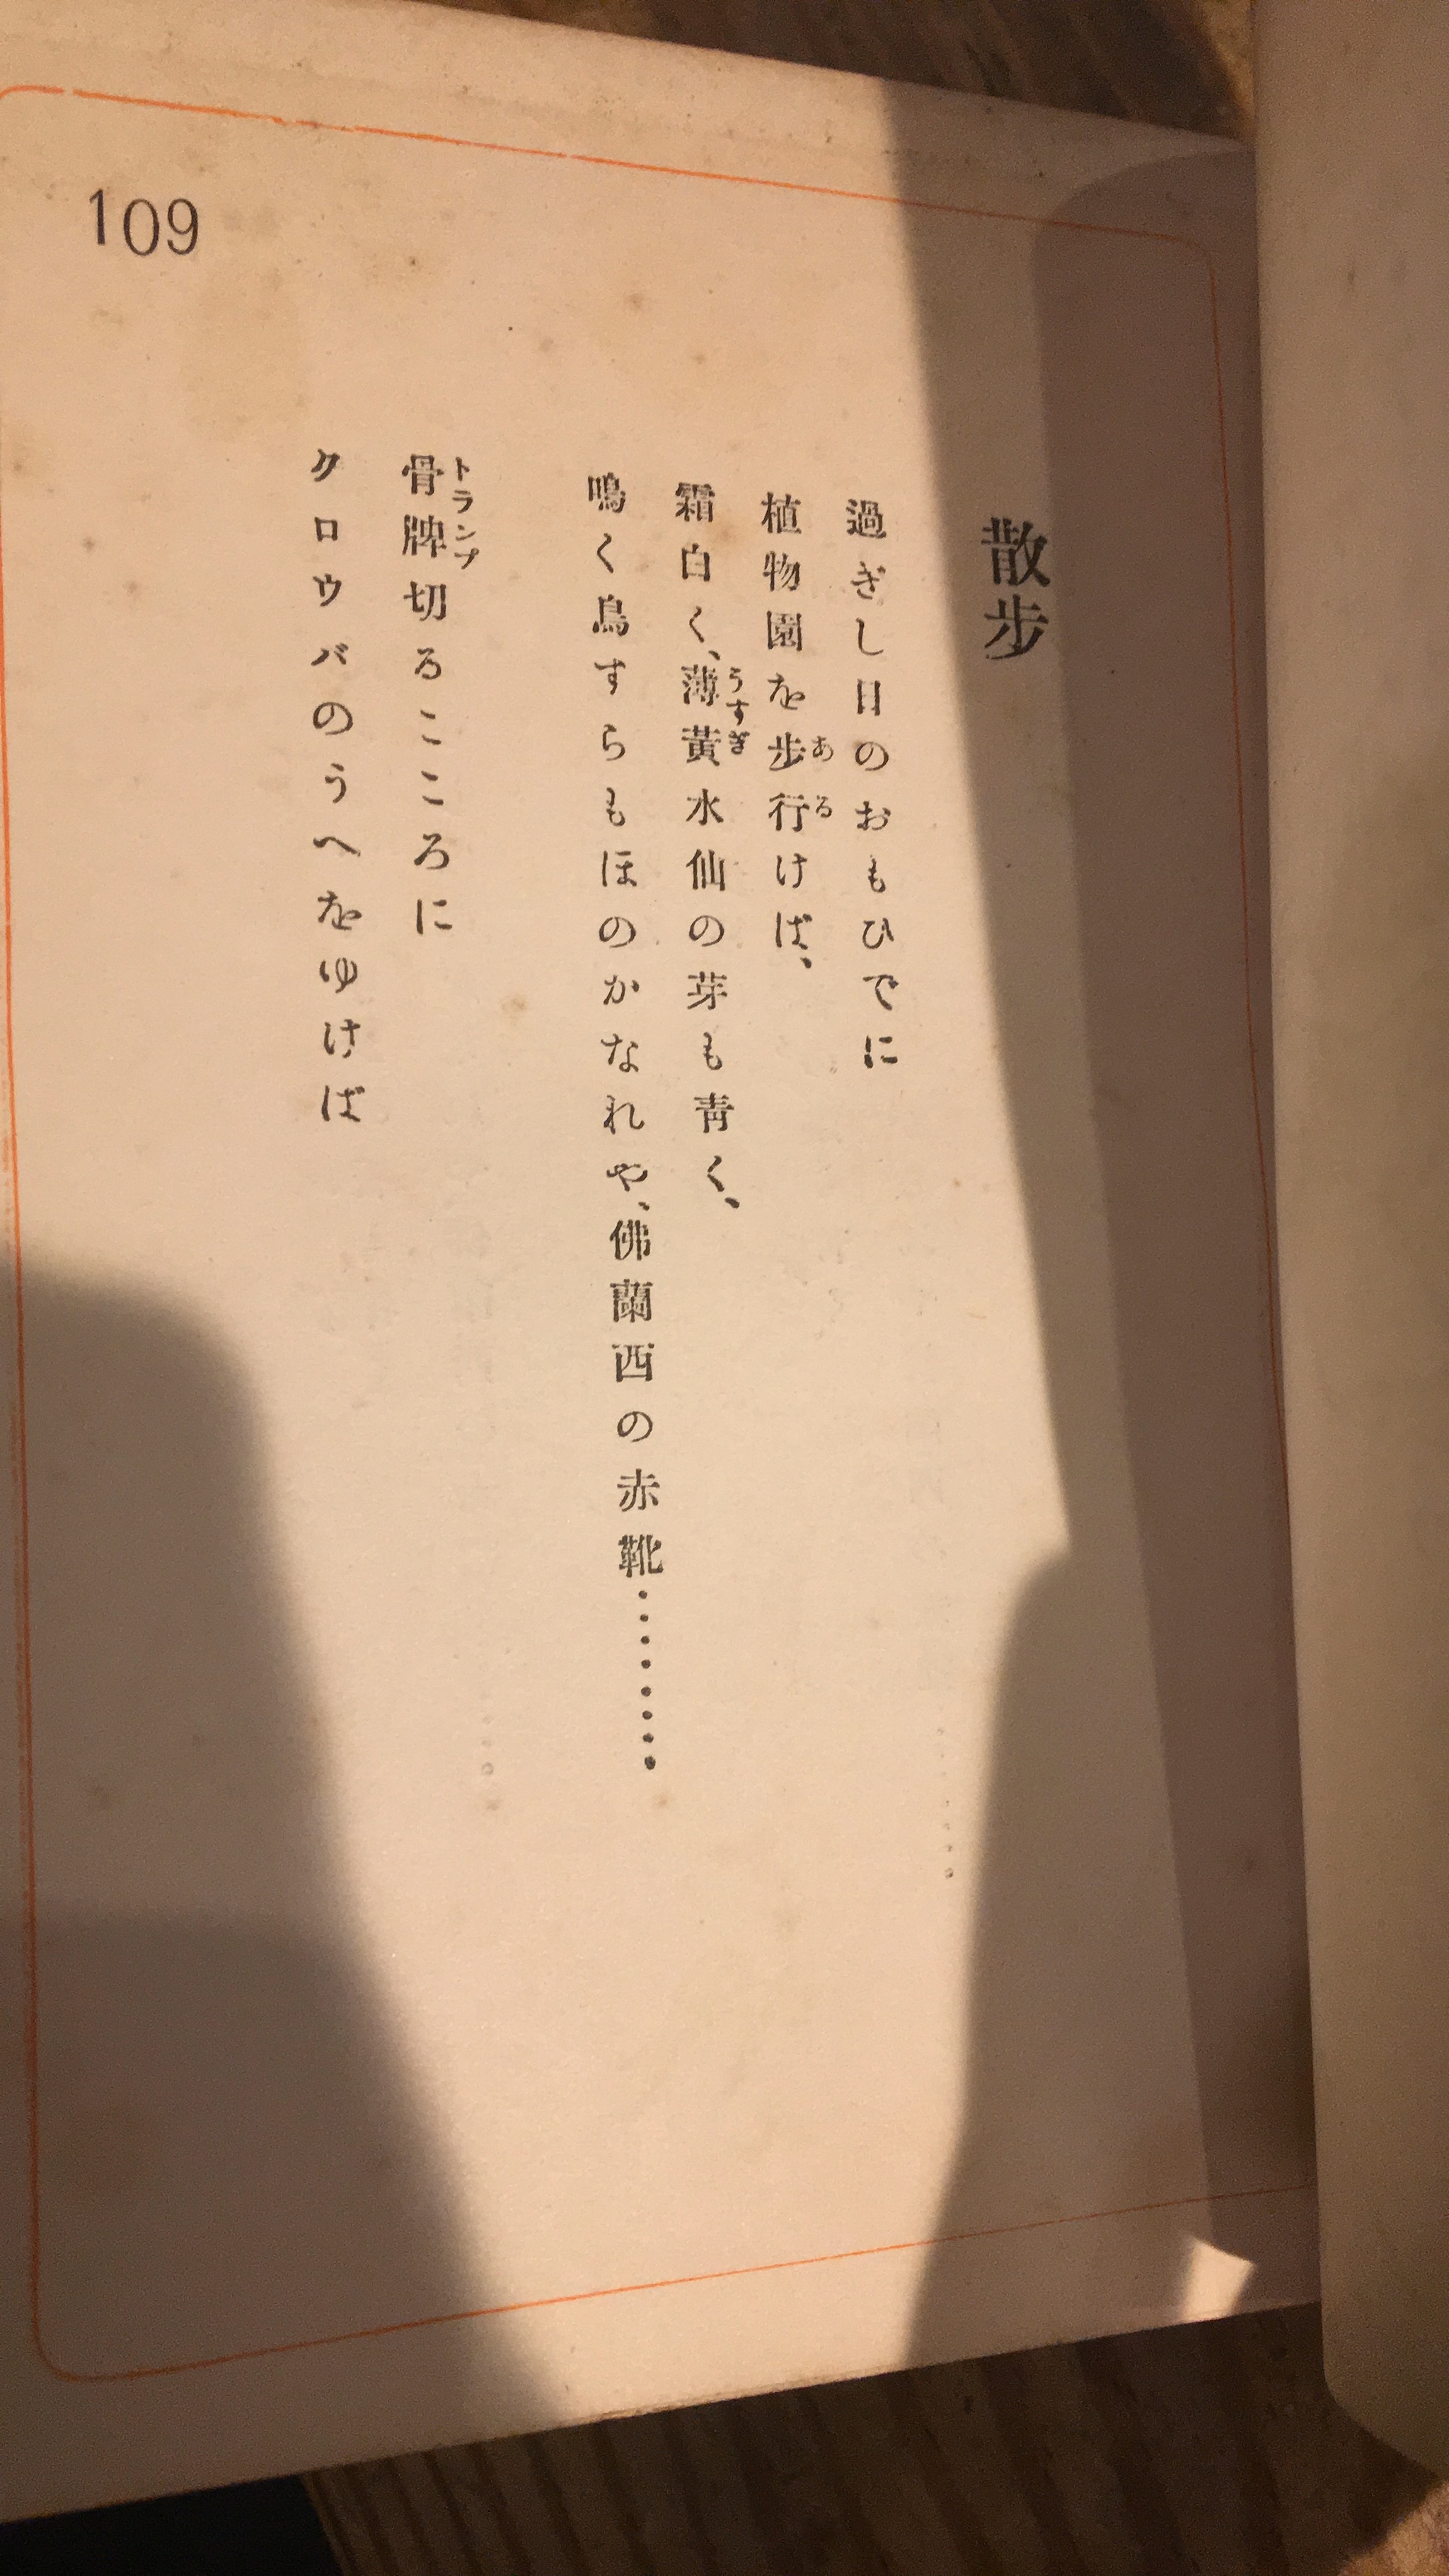 散步
過ぎし日のおもひでに
植物園を步行けば、
霜白く、薄黃水仙の芽も靑く、
鳴く鳥すらもほのかなれや、佛蘭西の赤靴………
骨牌切るこころに
クロウバのうへをゆけば
109
ある
うすぎ
トランプ